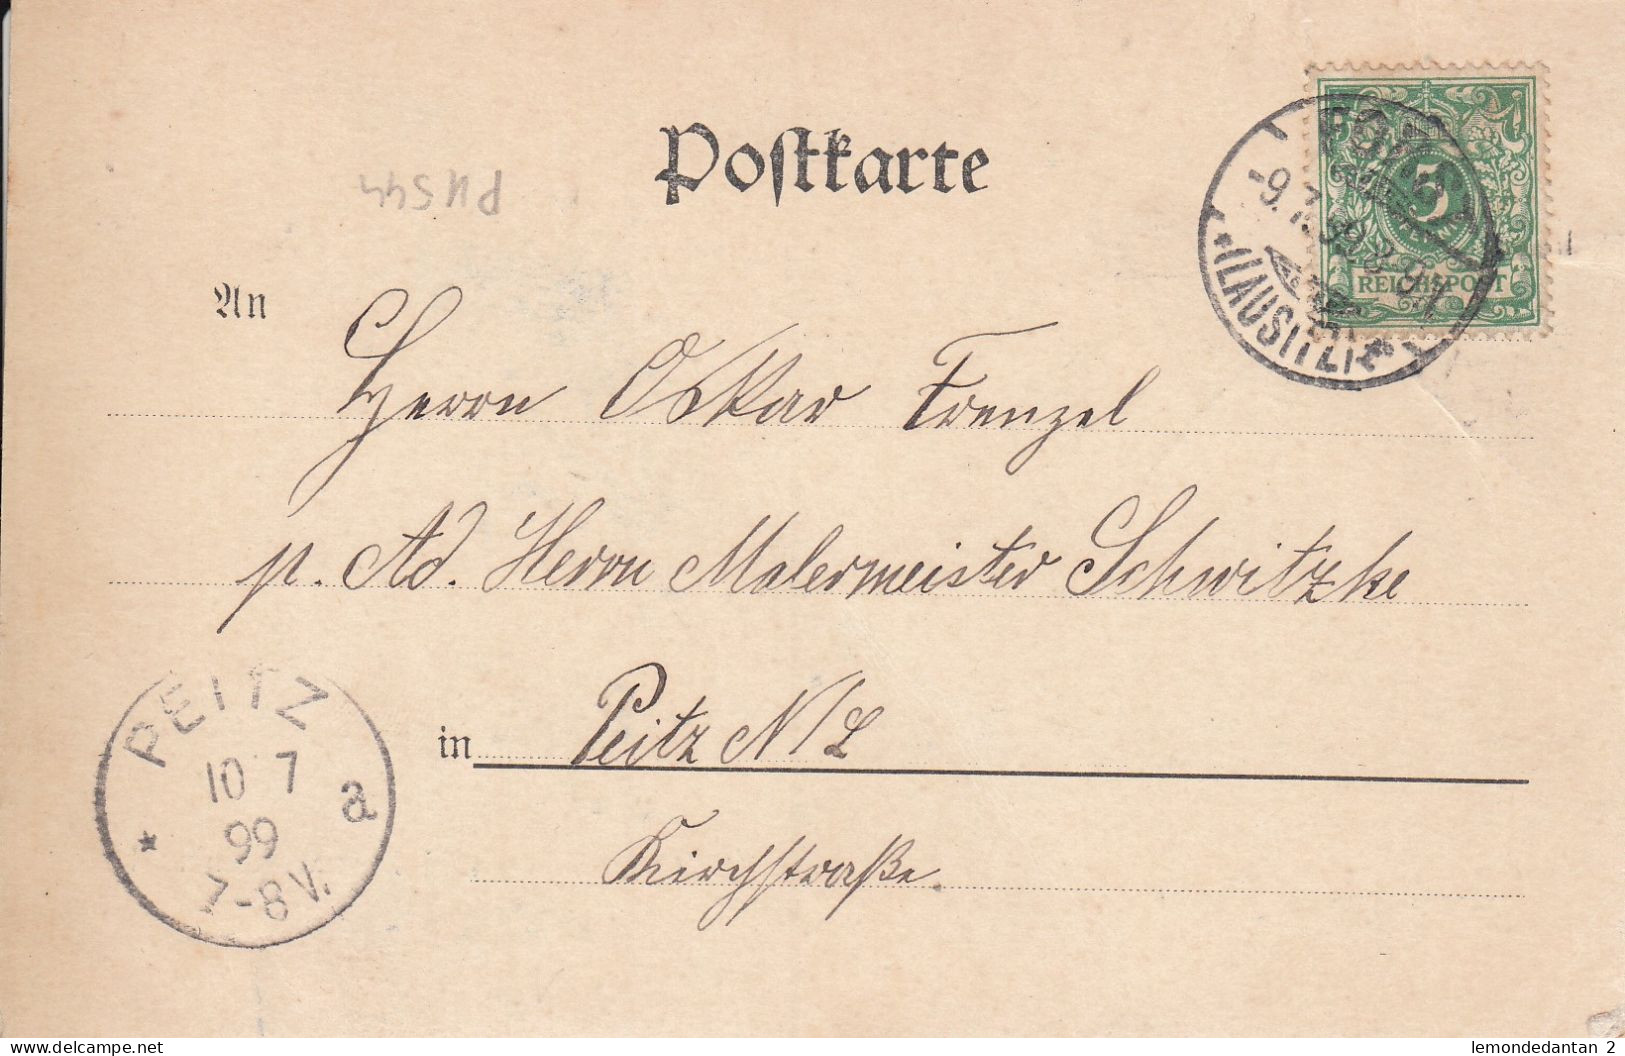 Postkarte
PU544
FORST
-9.7.99.8-9V.
(LAUSITZ)
5
REICHSPOST
An
Herrn Oskar Frenzel
p. Ad. Herrn Malermeister Schwitzke
in Peitz N/L
Kirchstraße.
PEITZ
10 7
99
7-8V.
* a
www.delcampe.net
lemondedantan 2